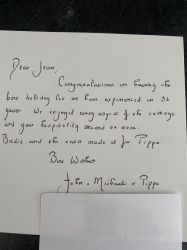 Dear Jean,
Congratulations on having the
best holiday let we have experienced in 36
years. We enjoyed every aspect of the cottage
and your hospitality second to none.
and the care made it for Pippa
Best Wishes
John, Michaela & Pippa